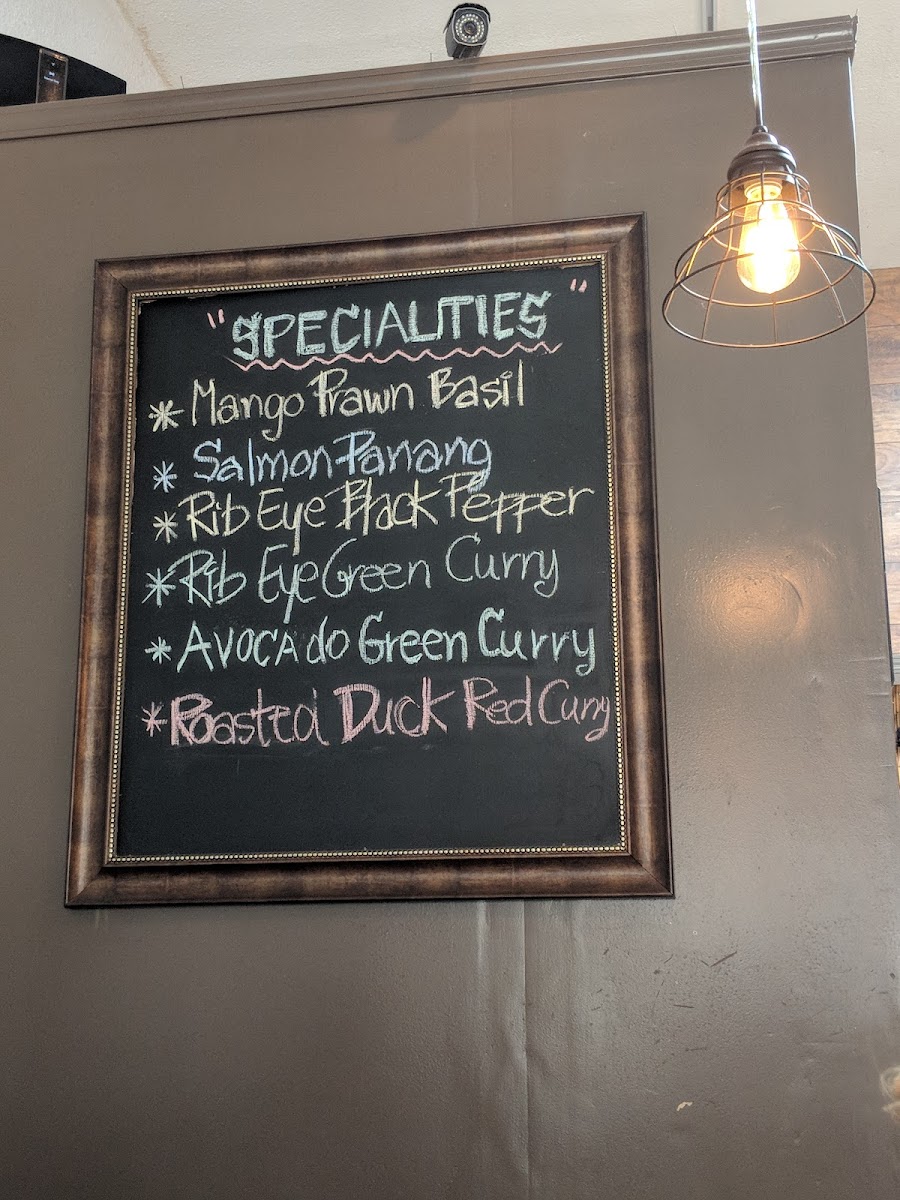 "SPECIALITIES"
* Mango Prawn Basil
* Salmon Panang
* Rib Eye Black Pepper
* Rib Eye Green Curry
* Avocado Green Curry
* Roasted Duck Red Curry